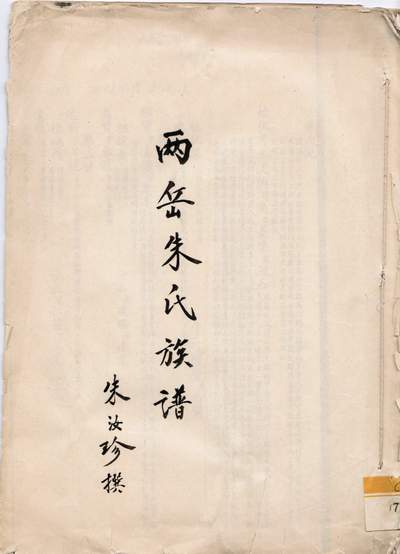 两岳朱氏族谱
朱汝珍撰
17